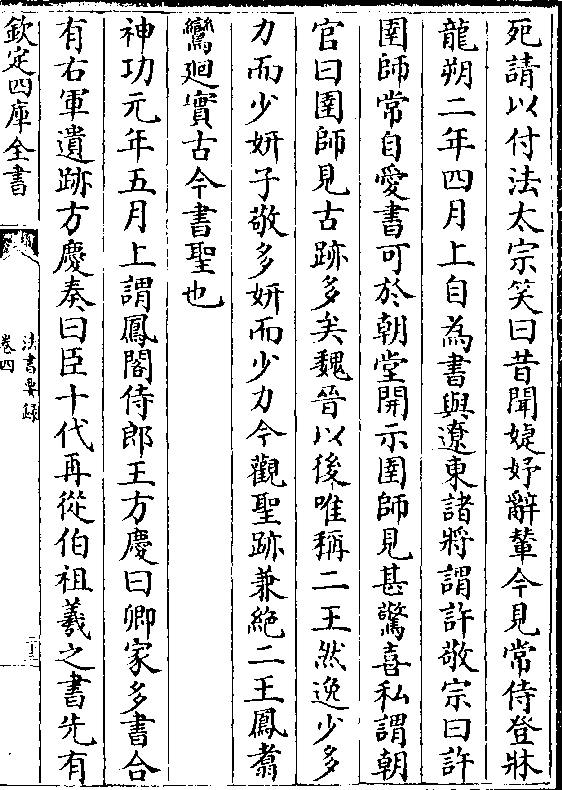 死請以付法太宗笑曰昔聞婕妤辭輦今見常侍登牀
龍朔二年四月上自為書與遼東諸將謂許敬宗曰許
圉師常自愛書可於朝堂開示圉師見甚驚喜私謂朝
官曰圉師見古跡多矣魏晉以後唯稱二王然逸少多
力而少妍子敬多妍而少力今觀聖跡兼絶二王鳳翥
鸞廻實古今書聖也
神功元年五月上謂鳳閣侍郎王方慶曰卿家多書合
有右軍遺跡方慶奏曰臣十代再從伯祖羲之書先有
欽定四庫全書
法書要録
卷四